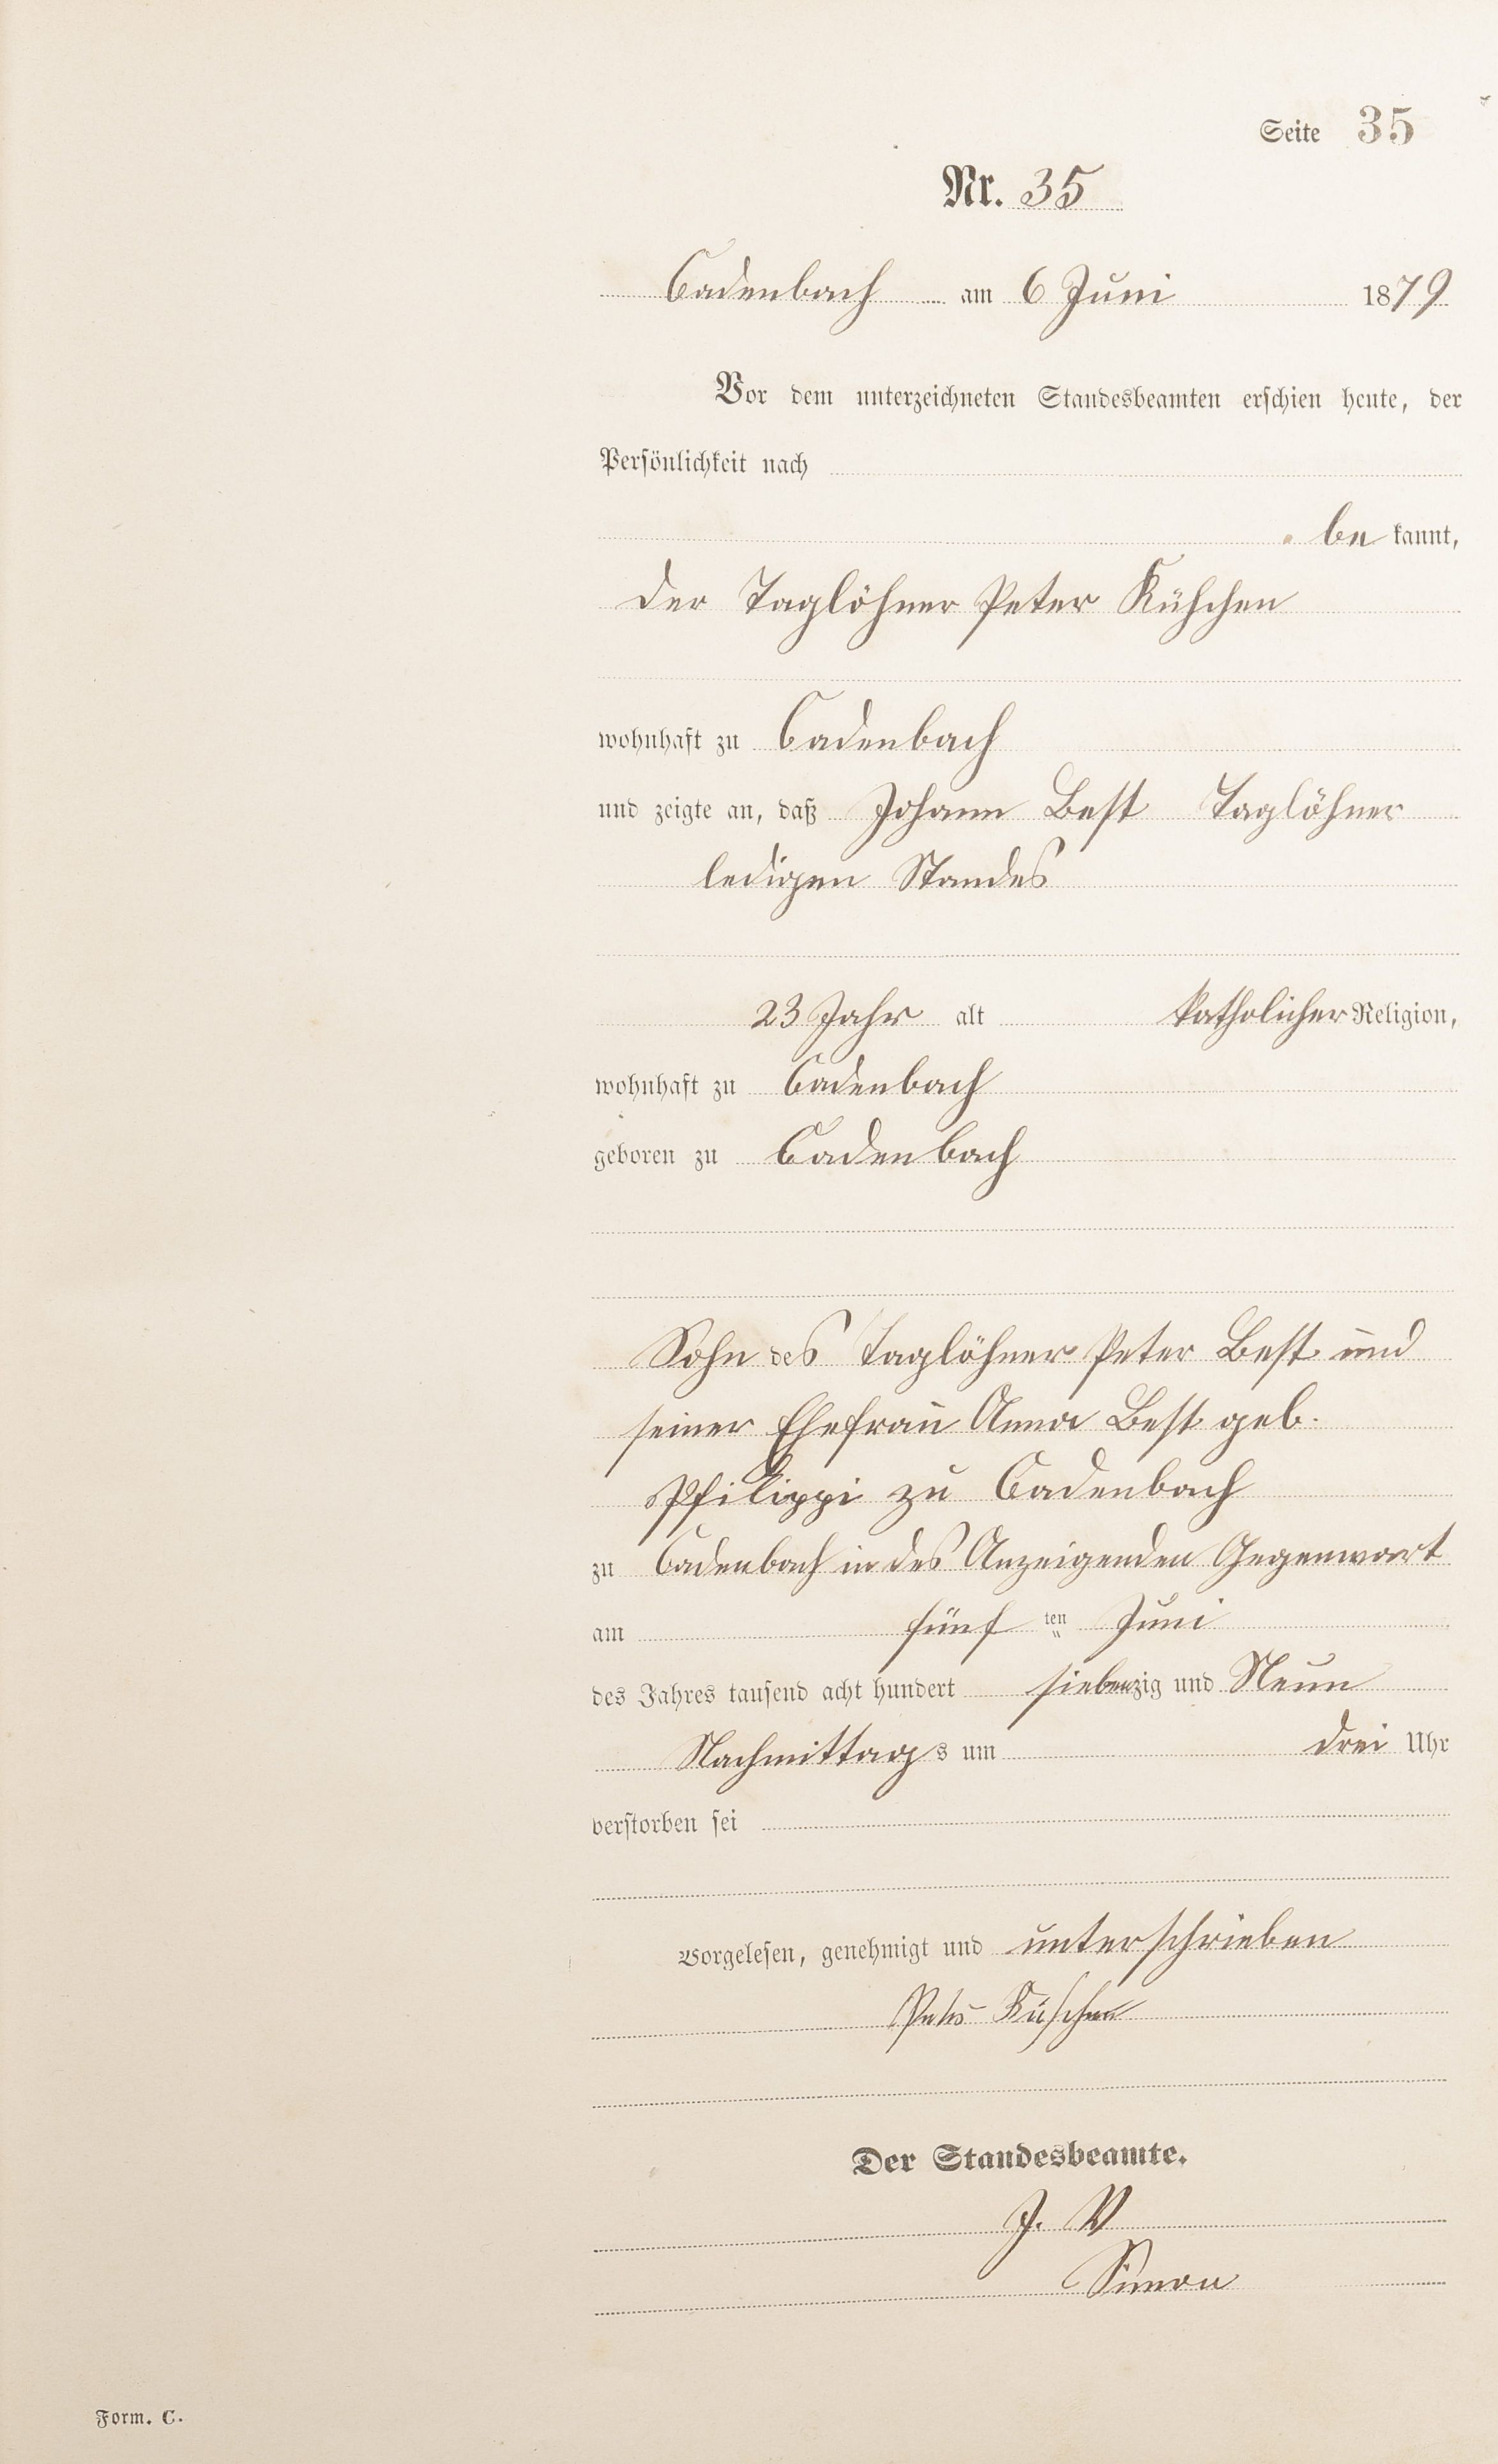 Seite 35
Nr. 35
Cadenbach am 6 Juni 1879
Vor dem unterzeichneten Standesbeamten erschien heute, der
Persönlichkeit nach
be kannt,
der Taglöhner Peter Kühchen
wohnhaft zu Cadenbach
und zeigte an, daß Johann Best Taglöhner
ledigen Standes
23 Jahr alt katholicher Religion,
wohnhaft zu Cadenbach
geboren zu Cadenbach
Sohn des Taglöhner Peter Best und
seiner Ehefrau Anna Best geb.
Philippi zu Cadenbach
zu Cadenbach in des Anzeigenden Gegenwart
am fünf ten Juni
des Jahres tausend acht hundert siebenzig und Neun
Nachmittags um drei Uhr
verstorben sei
Vorgelesen, genehmigt und unterschrieben
Peter Küschen
Der Standesbeamte.
J. V
Simon
Form. C.